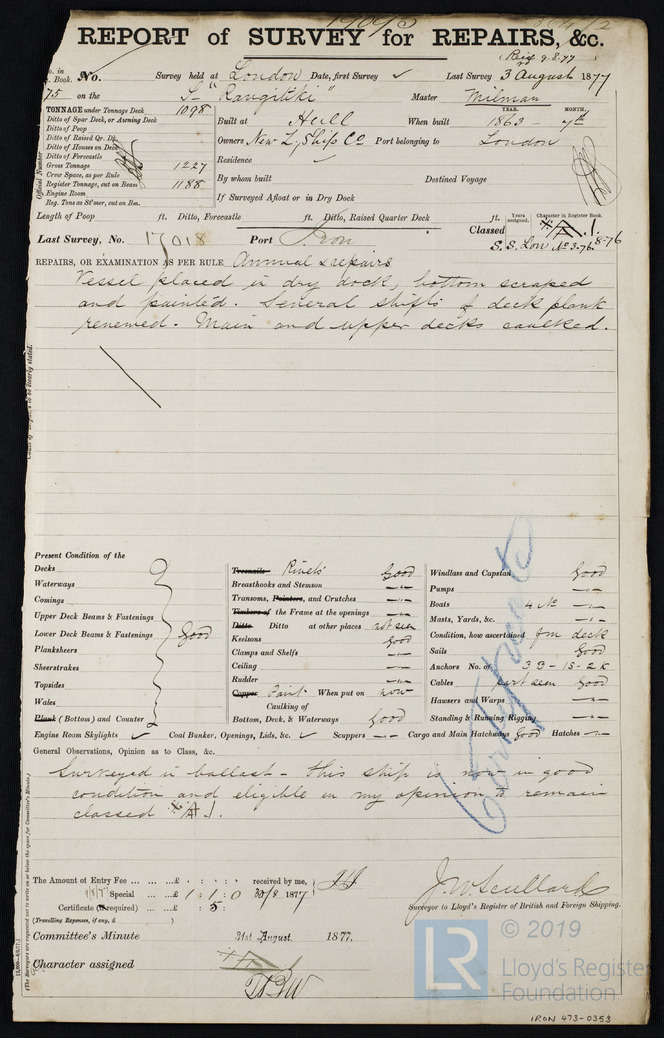 REPORT of SURVEY for REPAIRS, &c.
(Recd 9.8.77
No. in Reg. Book. No. Survey held at London Date, first Survey ✓ Last Survey 3 August 1877
75 on the "Rangitiki" Master Milman
TONNAGE under Tonnage Deck 1098
Ditto of Spar Deck, or Awning Deck
Ditto of Poop
Ditto of Raised Qr. Dk.
Ditto of Houses on Deck
Ditto of Forecastle
Gross Tonnage 1227
Crew Space, as per Rule
Register Tonnage, cut on Beam 1188
Engine Room
Reg. Tons as St'mer, cut on Bm.
Official Number
Built at Hull When built YEAR. 1863 - MONTH. 7th
Owners New Z. Ship Co Port belonging to London
Residence ✓
By whom built Destined Voyage
If Surveyed Afloat or in Dry Dock
Length of Poop ft. Ditto, Forecastle ft. Ditto, Raised Quarter Deck ft.
Classed Years assigned. Character in Register Book. A.1.
S.S. Lon No 3-76 8-76
Last Survey, No. 17018 Port Iron
REPAIRS, OR EXAMINATION AS PER RULE Annual & repairs
Vessel placed in dry dock, bottom scraped
and painted. Several shifts of deck plank
renewed. Main and upper decks caulked.
Present Condition of the
Decks
Waterways
Comings
Upper Deck Beams & Fastenings
Lower Deck Beams & Fastenings Good
Planksheers
Sheerstrakes
Topsides
Wales
Plank (Bottom) and Counter
Treenails Rivets Good
Breasthooks and Stemson —"—
Transoms, Pointers, and Crutches —"—
Timbers of the Frame at the openings —"—
Ditto Ditto at other places not seen
Keelsons Good
Clamps and Shelfs —"—
Ceiling —"—
Rudder —"—
Copper Paint When put on now
Caulking of
Bottom, Deck, & Waterways Good
Windlass and Capstan Good
Pumps —"—
Boats 4 No —"—
Masts, Yards, &c. —"—
Condition, how ascertained frm deck
Sails Good
Anchors No. of 3B - 1S - 2K
Cables part seen Good
Hawsers and Warps —"—
Standing & Running Rigging —"—
Engine Room Skylights ✓ Coal Bunker, Openings, Lids, &c. ✓ Scuppers —"— Cargo and Main Hatchways Good Hatches —"—
General Observations, Opinion as to Class, &c.
Surveyed in ballast - this ship is now in good
condition and eligible in my opinion to remain
classed A.1.
The Amount of Entry Fee ... ... ...£ : : received by me,
Special ... ...£ 1 : 1 : 0 30/8 1877
Certificate (if required) ...£ : 5 :
(Travelling Expenses, if any, £ )
J. W. Scullard
Surveyor to Lloyd's Register of British and Foreign Shipping.
Committee's Minute 31st August 1877.
Character assigned
© 2019
LR
Lloyd's Register
Foundation
IRON 473-0353